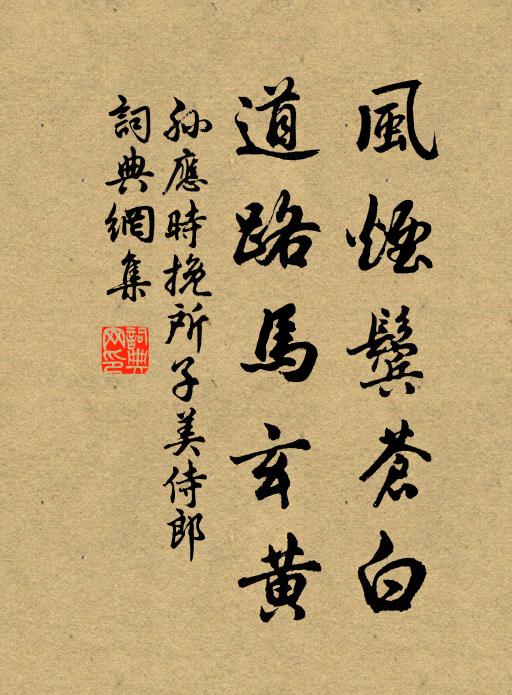 風煙鬢蒼白
道路馬玄黃
孫應時挽所子美侍郎
詞典網集
詞典网印